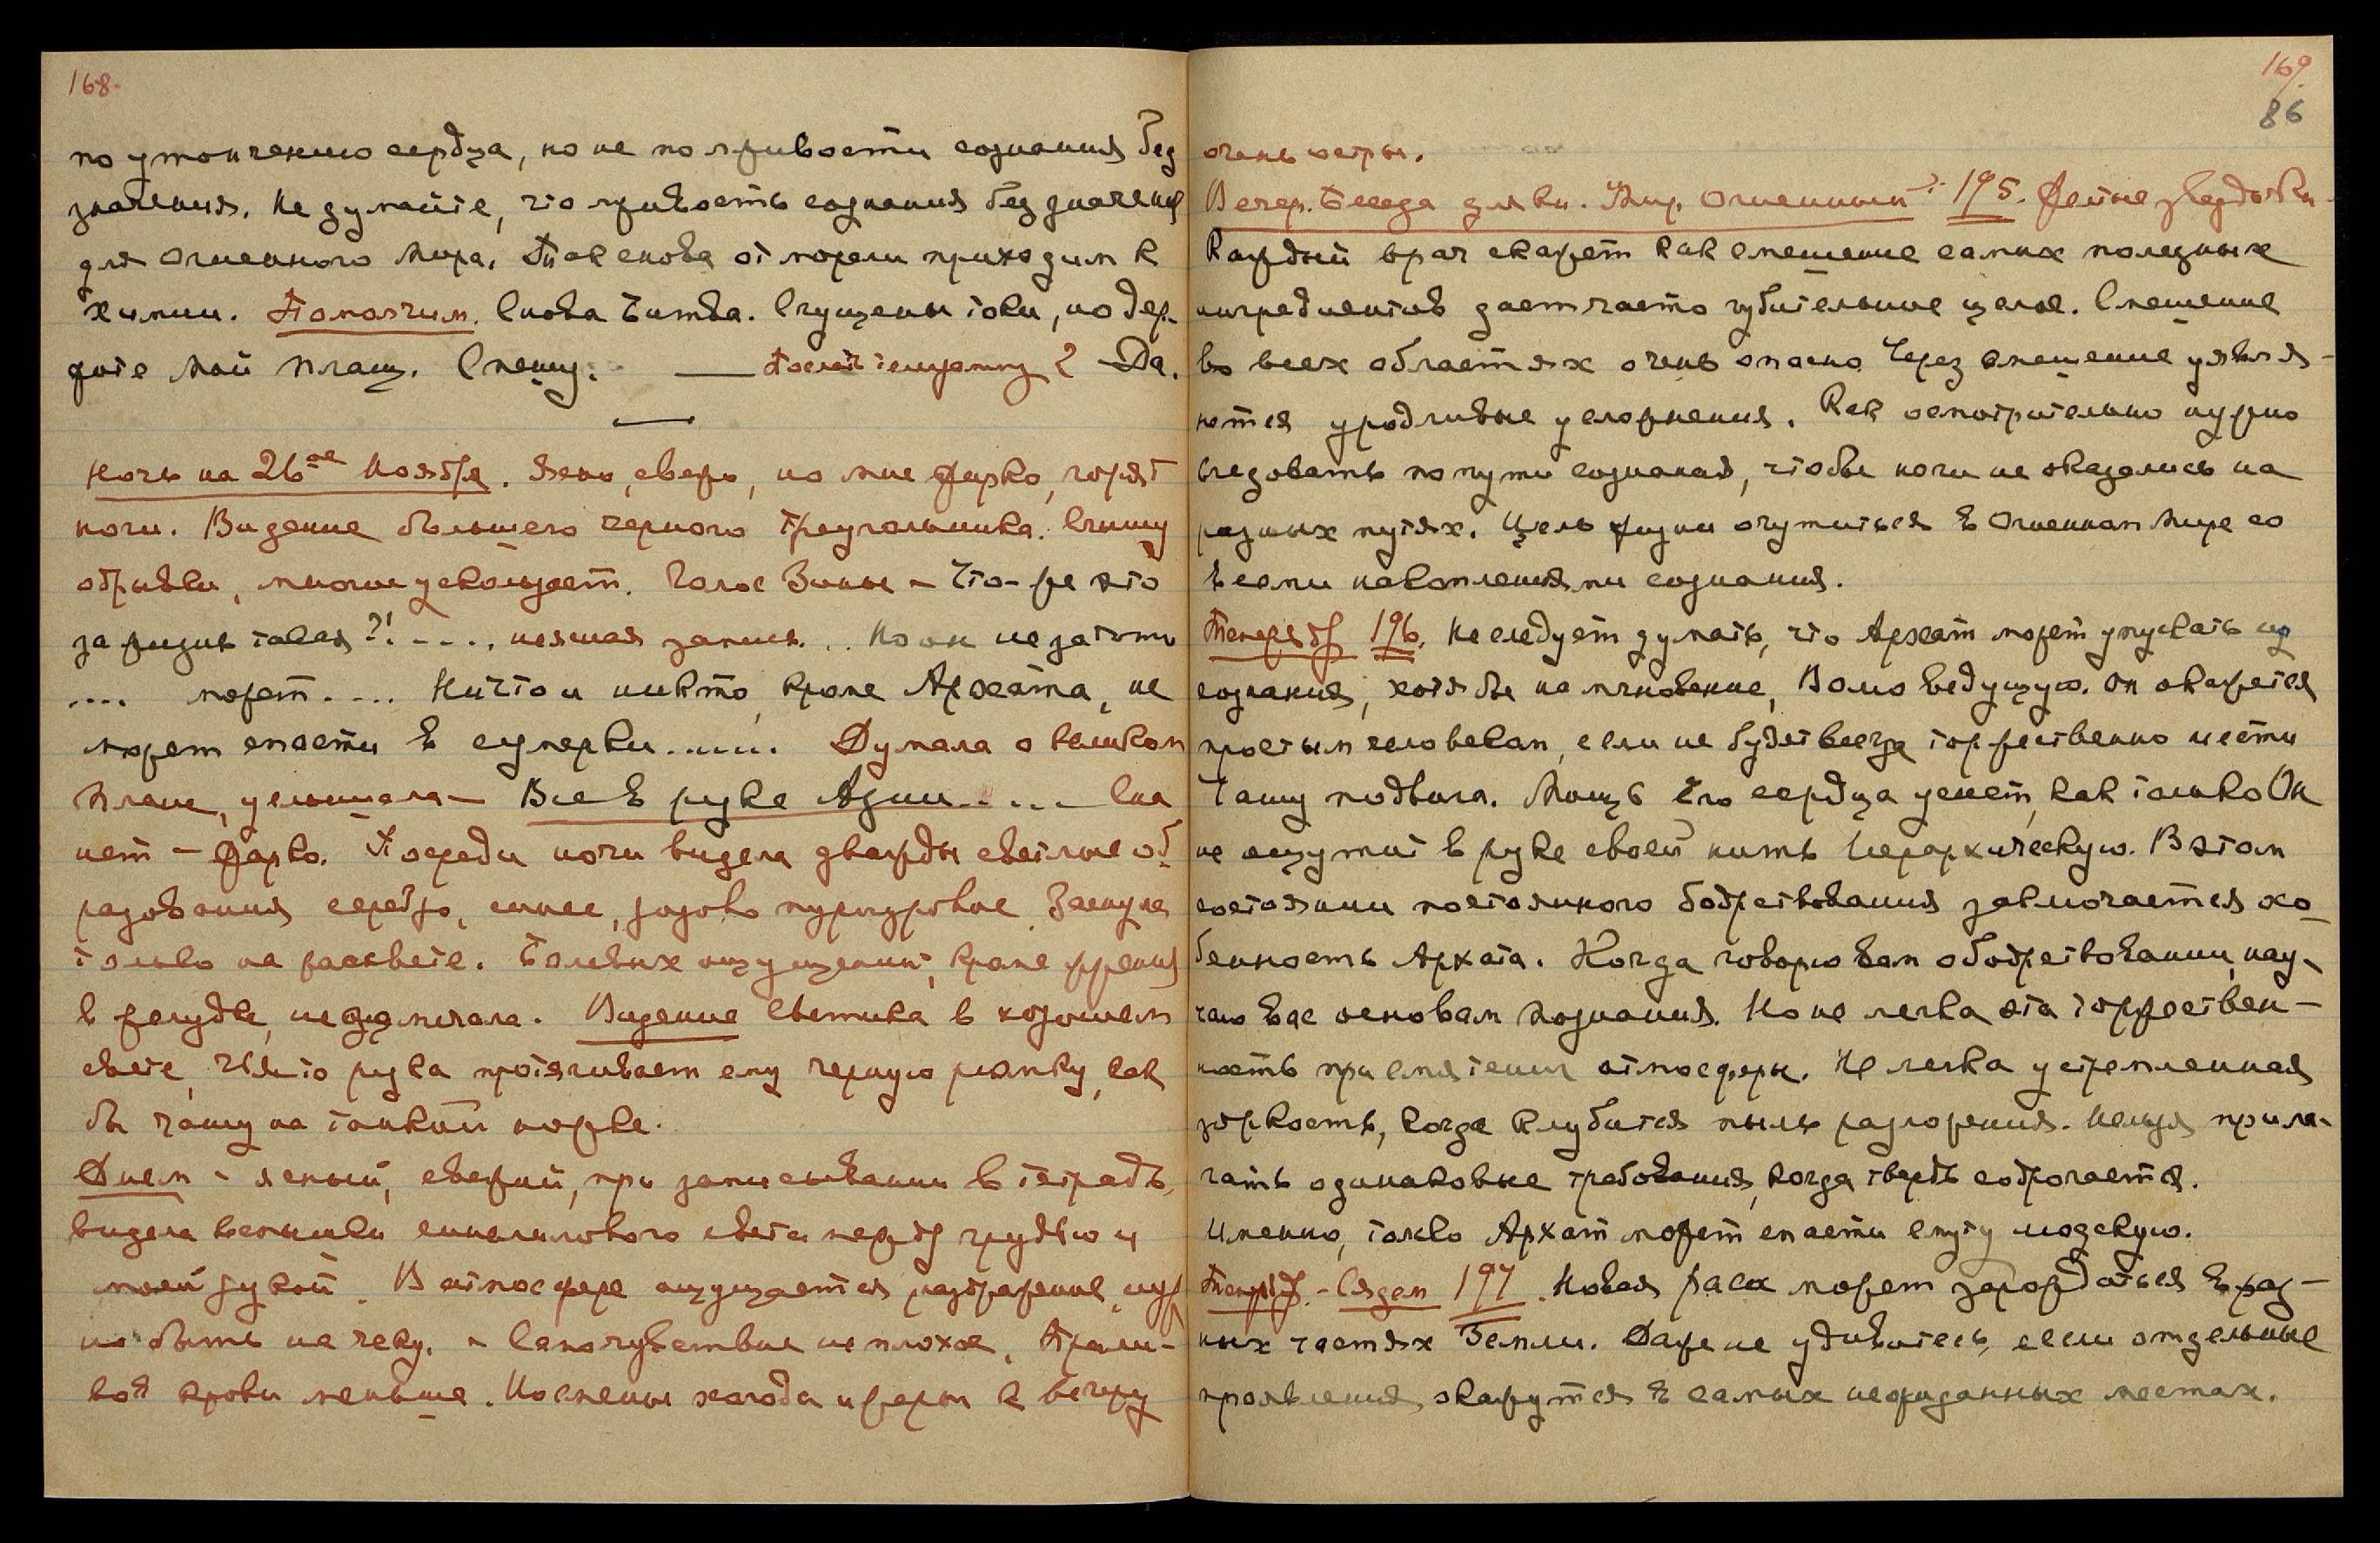 168.
по утончению сердца, но не по лживости сознания без
значения. Не думайте, что лживость сознания без значения
для Огненного Мира. Так снова от морали приходим к
химии. Помолчим. Снова Битва. Сгущены токи, но дер-
жите Мой Плащ. Спешу. — телеграмму? — Да.
—
Ночь на 26ое Ноября. Ясно, свежо, но мне жарко, горят
ноги. Видение большего черного треугольника. Слышу
обрывки, многое ускользает. Голос Зины – Что-же это
за жизнь такая?! ...., неясная запись... Но он не
.... может.... Ничто и никто, кроме Архата, не
может спасти в сумерки...... Думала о великом
плане, услышала – Все в руке Азии..... Сна
нет – жарко. Посреди ночи видела дважды светлые об-
разования серебро, синее, розово пурпуровое. Заснула
только на рассвете. Болевых ощущений, кроме жжения
в желудке, не замечала. Видение Светика в хорошем
свете, Чья-то рука протягивает ему черную рюмку, как
бы чашу на тонкой ножке.
Днем – ясный, свежий, при записывании в тетрадь,
видела вспышки синелилового света перед грудью и
моей рукой. В атмосфере ощущается раздражение, нуж
но быть на чеку. – Самочувствие не плохое, Прили-
вов крови меньше. Но смены холода и жары к вечеру
169.
86
очень остры.
Вечер. Беседа для кн. Мир Огненный. 195.
Каждый врач скажет как смешение самых полезных
ингредиентов дает часто губительное целое. Смешение
во всех областях очень опасно. Через смешение уявля-
ются уродливые усложнения. Как осмотрительно нужно
следовать по пути сознания, чтобы ноги не оказались на
разных путях. Цель жизни очутиться в Огненном Мире со
всеми накоплениями сознания.
Теперь 196. Не следует думать, что Архат может упускать из
сознания, хотя бы на мгновение, Волю ведущую. Он окажется
простым человеком, если не будет всегда торжественно нести
Чашу подвига. Мощь Его сердца уснет, как только Он
не ощутит в руке своей нить Иерархическую. В этом
состоянии постоянного бодрствования заключается осо-
бенность Архата. Когда говорю вам о бодрствовании, нау-
чаю вас основам познания. Но не легка эта торжествен-
ность при смятении атмосферы. Не легка устремленная
зоркость, когда клубится пыль разложения. Нельзя прила-
гать одинаковые требования, когда твердь содрогается.
Именно, только Архат может спасти смуту людскую.
197. Новая раса может зарождаться в раз-
ных частях Земли. Даже не удивитесь, если отдельные
проявления окажутся в самых неожиданных местах.